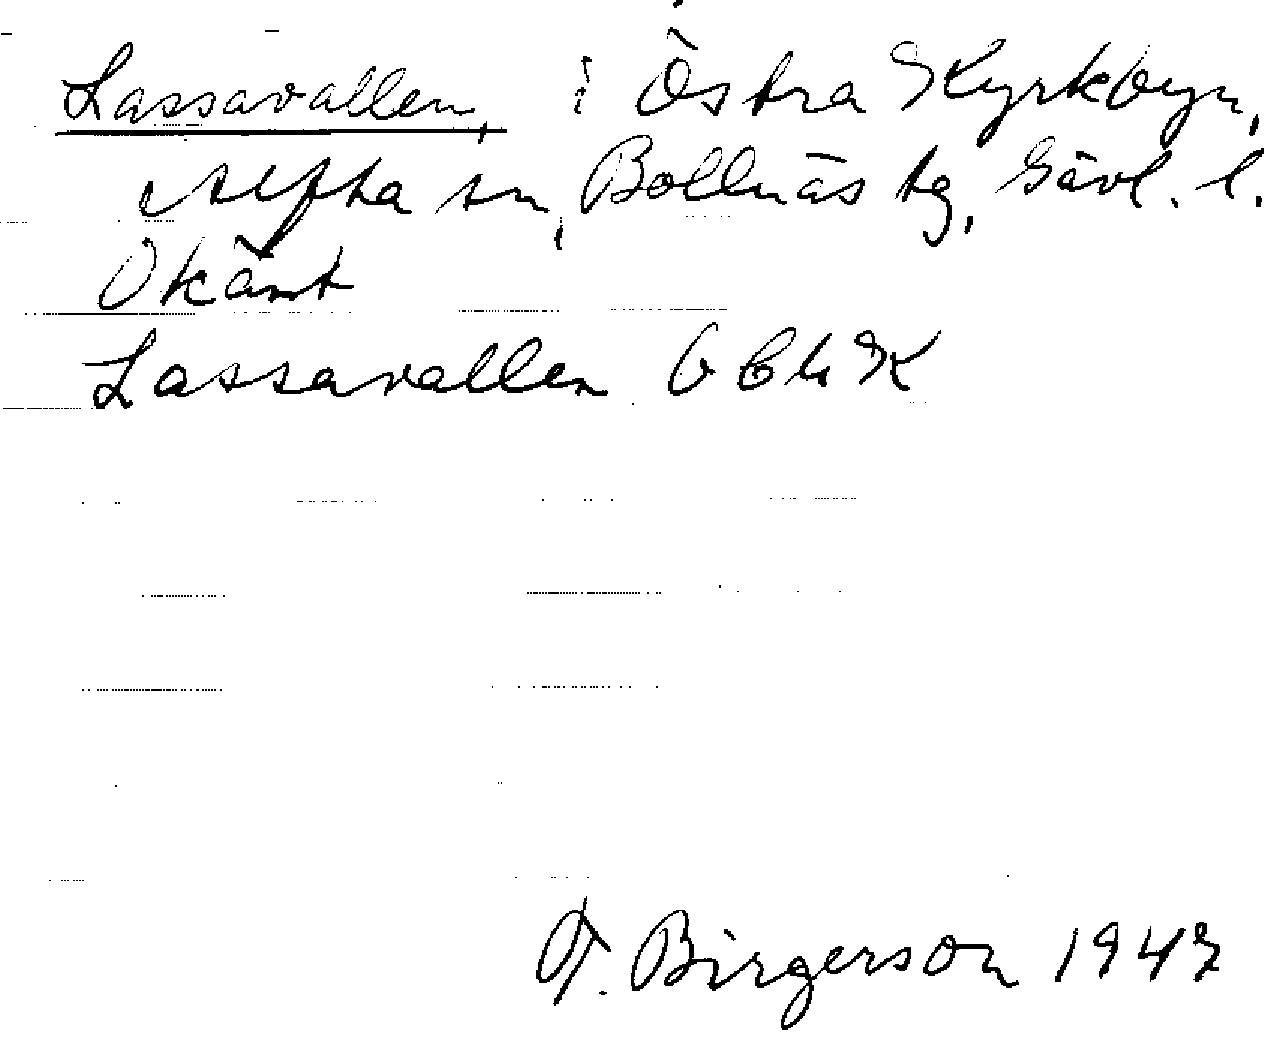 Lassavallen, i Östra Kyrkbyn,
Alfta sn, Bollnäs tg, Gävl. l.
Okänt
Lassavallen
T. Birgerson 1947